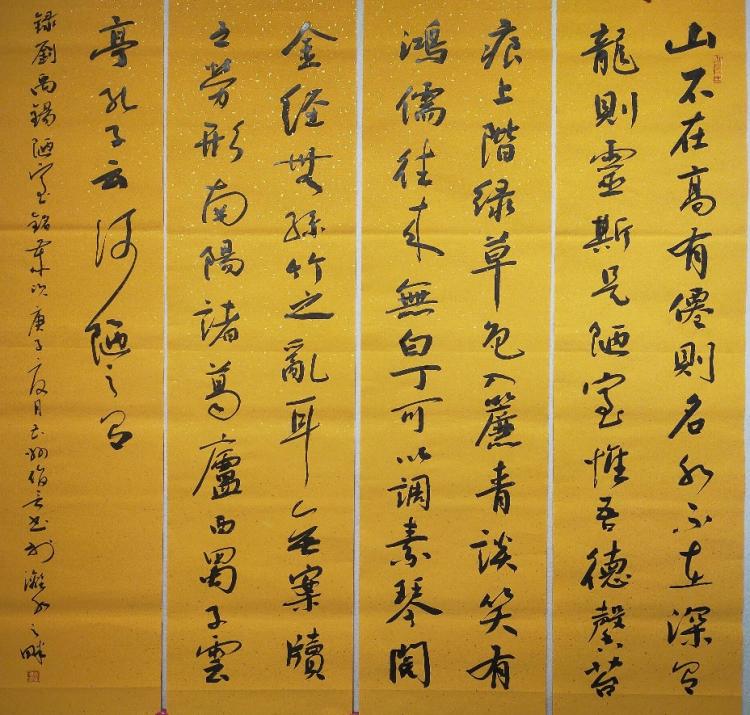 山不在高有僊則名水不在深有
龍則靈斯是陋室惟吾德馨苔
痕上階緑草色入簾青談笑有
鴻儒往来無白丁可以調素琴閲
金經無絲竹之亂耳無案牘
之勞形南陽諸葛廬西蜀子雲
亭孔子云何陋之有
録劉禹錫陋室銘庚子夏月書於之畔